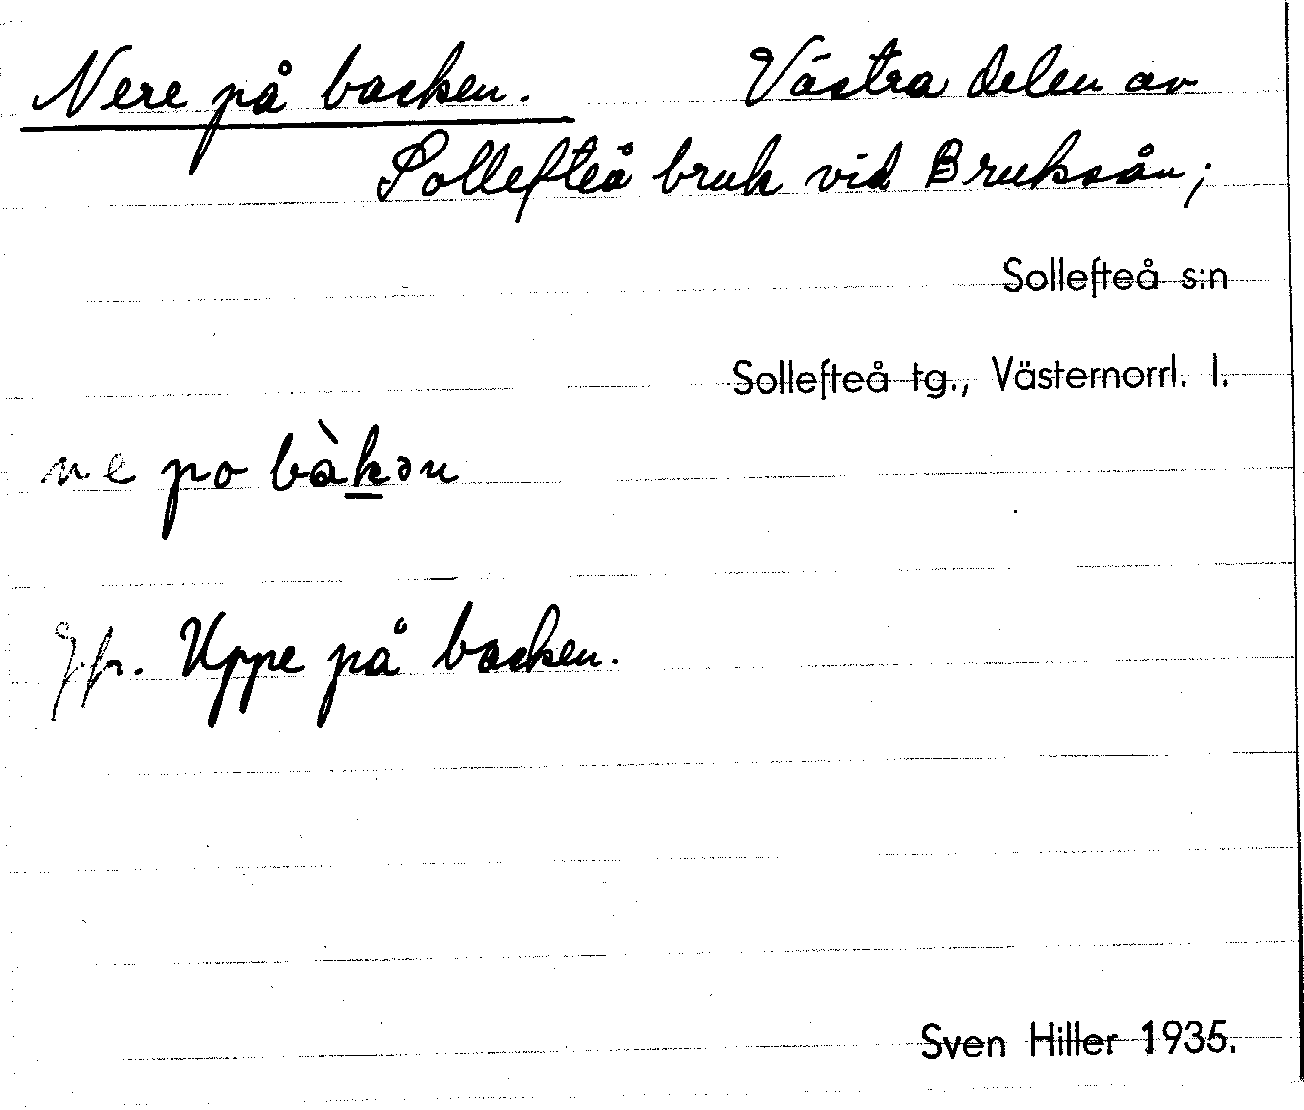 Nere på backen. Västra delen av
Sollefteå bruk vid Bruksån;
Sollefteå s:n
Sollefteå tg., Västernorrl. l.
ne po bàkən
Jfr. Uppe på backen.
Sven Hiller 1935.